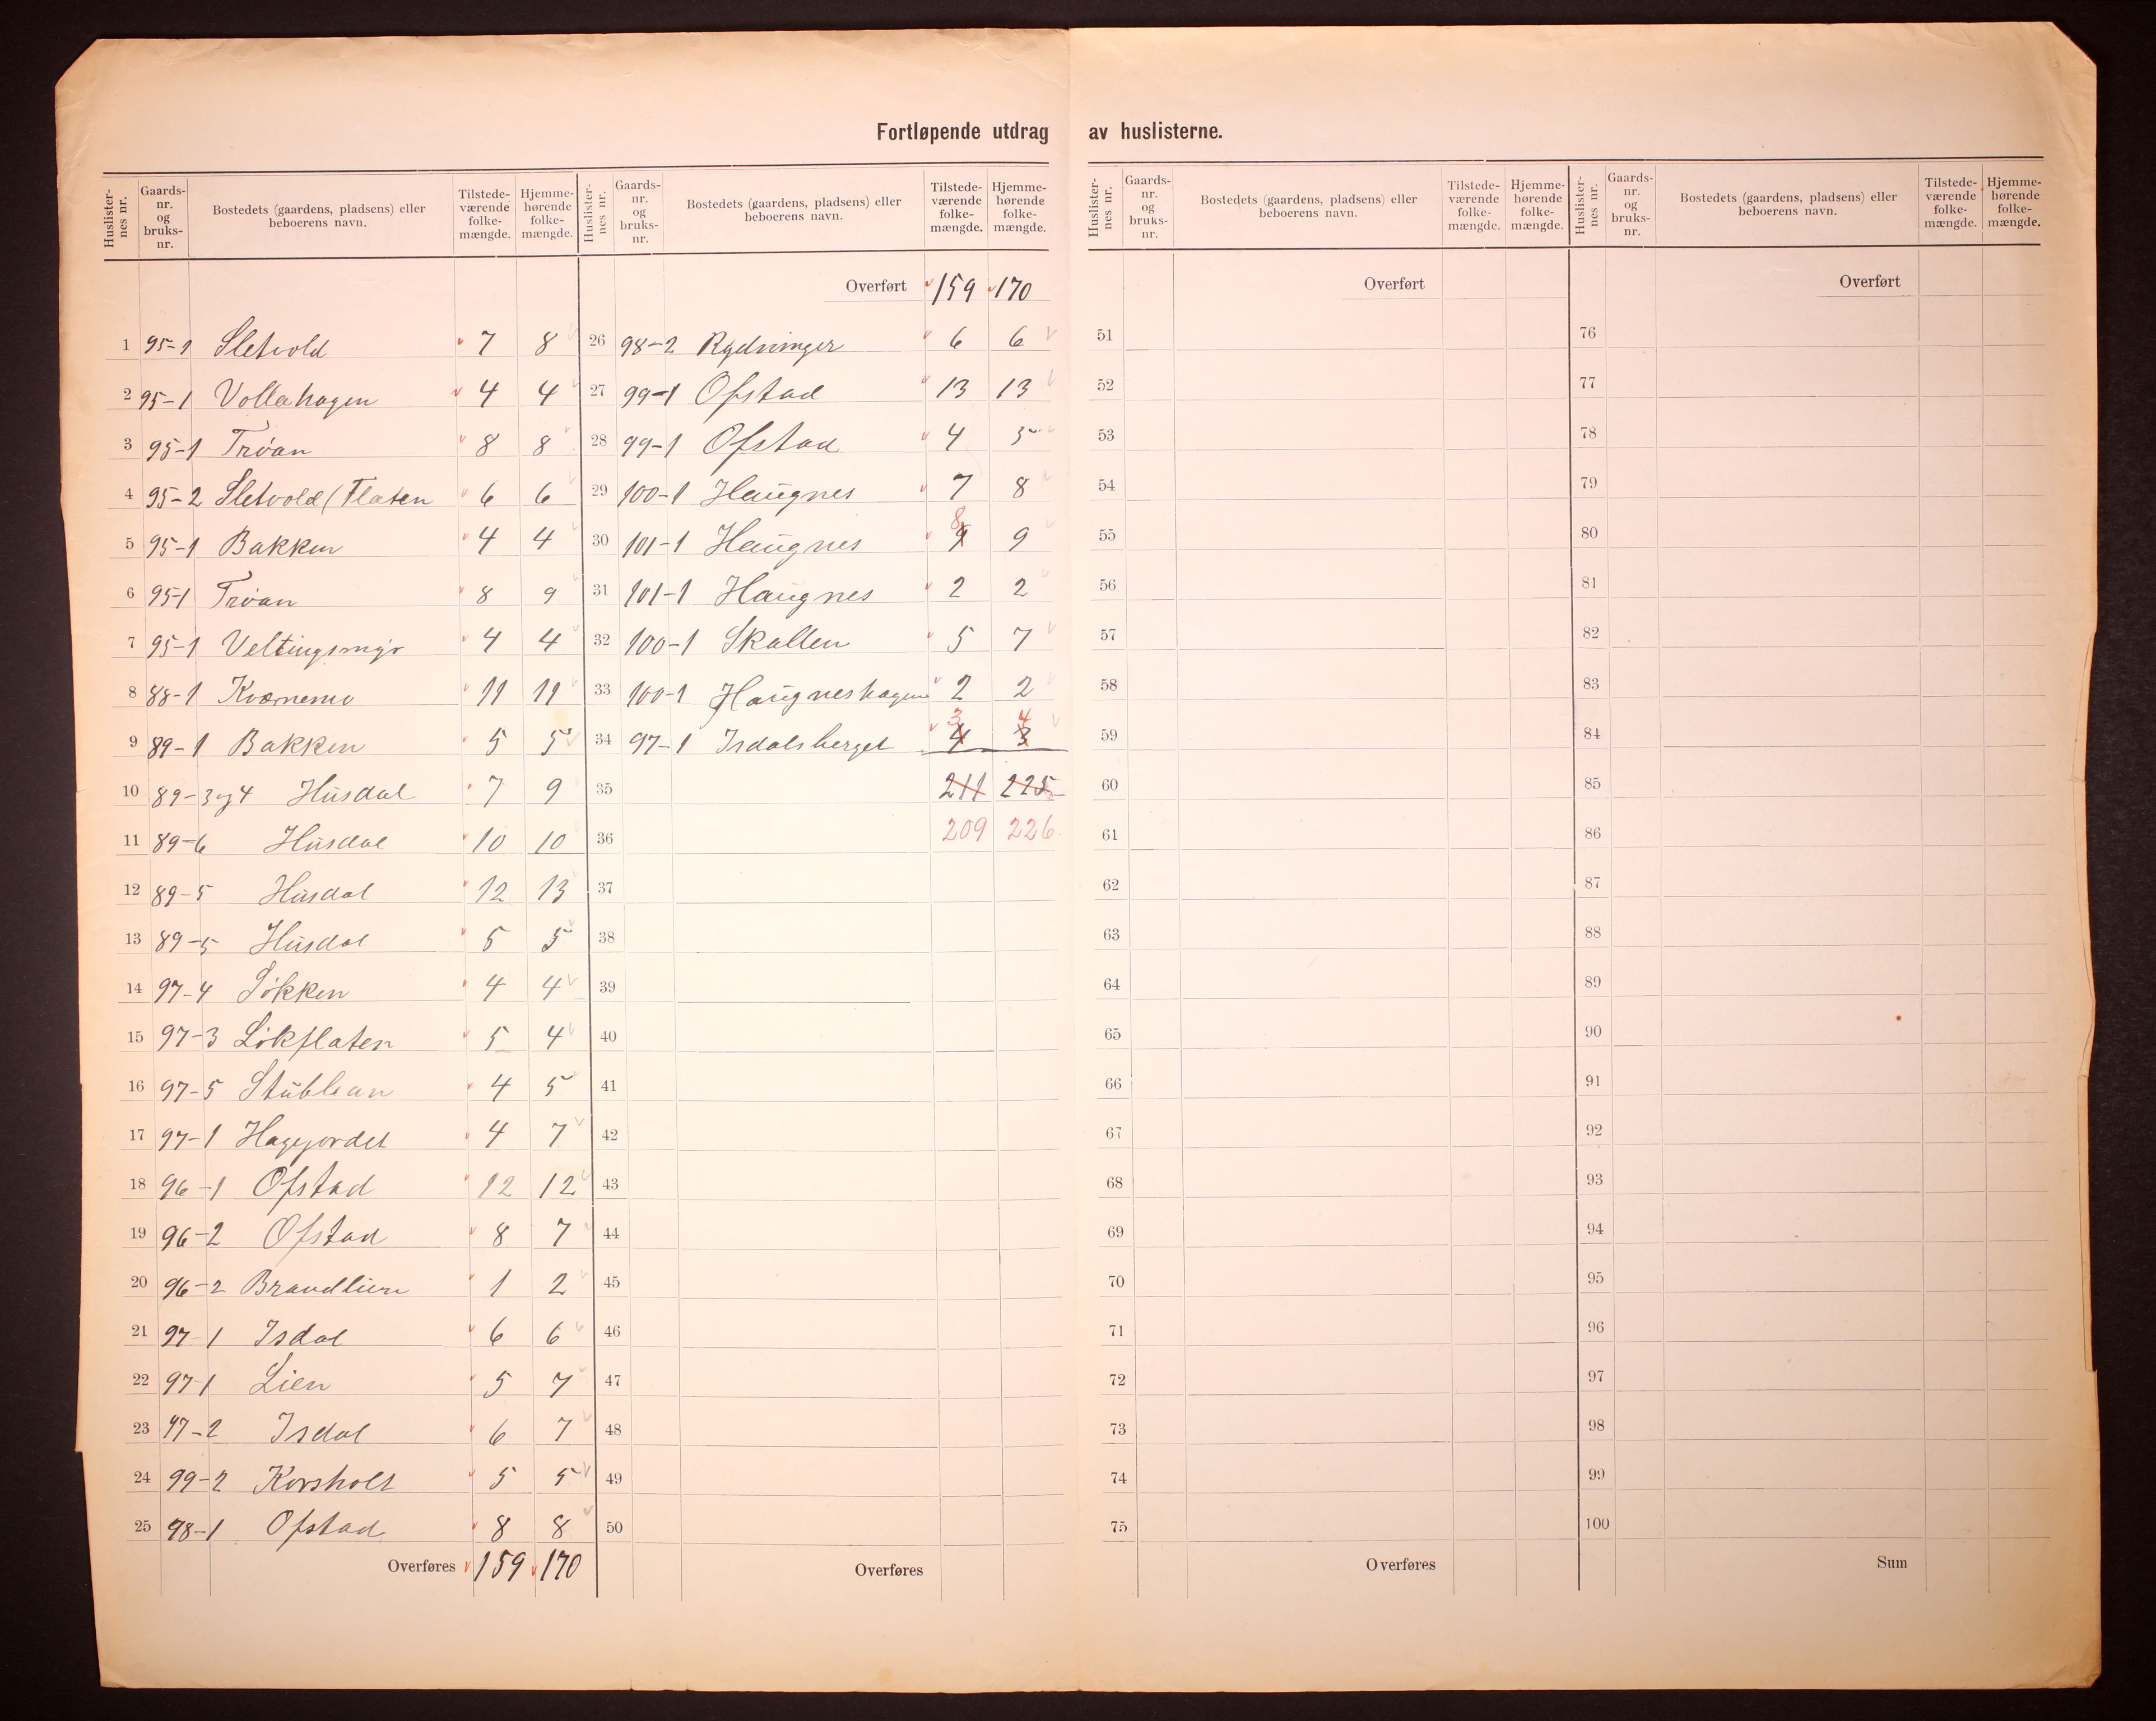 Fortløpende utdrag av huslisterne.
Huslister-nes nr. Gaards-nr. og bruks-nr. Bostedets (gaardens, pladsens) eller beboerens navn. Tilstede-værende folke-mængde. Hjemme-hørende folke-mængde.
1 95-1 Sletvold 7 8
2 95-1 Vollahagen 4 4
3 95-1 Trøan 8 8
4 95-2 Sletvold (Flaten 6 6
5 95-1 Bakken 4 4
6 95-1 Trøan 8 9
7 95-1 Veltingsmyr 4 4
8 88-1 Kværnemo 11 11
9 89-1 Bakken 5 5
10 89-3og4 Husdal 7 9
11 89-6 Husdal 10 10
12 89-5 Husdal 12 13
13 89-5 Husdal 5 5
14 97-4 Løkken 4 4
15 97-3 Løkflaten 5 4
16 97-5 Stubban 4 5
17 97-1 Hagejordet 4 7
18 96-1 Ofstad 12 12
19 96-2 Ofstad 8 7
20 96-2 Brandlien 1 2
21 97-1 Isdal 6 6
22 97-1 Lien 5 7
23 97-2 Isdal 6 7
24 99-2 Korsholt 5 5
25 98-1 Ofstad 8 8
Overføres 159 170
Huslister-nes nr. Gaards-nr. og bruks-nr. Bostedets (gaardens, pladsens) eller beboerens navn. Tilstede-værende folke-mængde. Hjemme-hørende folke-mængde.
Overført 159 170
26 98-2 Rydninger 6 6
27 99-1 Ofstad 13 13
28 99-1 Ofstad 4 5
29 100-1 Haugnes 7 8
30 101-1 Haugnes 9 8 9
31 101-1 Haugnes 2 2
32 100-1 Skallen 5 7
33 100-1 Haugneshagen 2 2
34 97-1 Isdalsberget 4 3 3 4
35 211 225
36 209 226
37
38
39
40
41
42
43
44
45
46
47
48
49
50
Overføres
Huslister-nes nr. Gaards-nr. og bruks-nr. Bostedets (gaardens, pladsens) eller beboerens navn. Tilstede-værende folke-mængde. Hjemme-hørende folke-mængde.
Overført
51
52
53
54
55
56
57
58
59
60
61
62
63
64
65
66
67
68
69
70
71
72
73
74
75
Overføres
Huslister-nes nr. Gaards-nr. og bruks-nr. Bostedets (gaardens, pladsens) eller beboerens navn. Tilstede-værende folke-mængde. Hjemme-hørende folke-mængde.
Overført
76
77
78
79
80
81
82
83
84
85
86
87
88
89
90
91
92
93
94
95
96
97
98
99
100
Sum